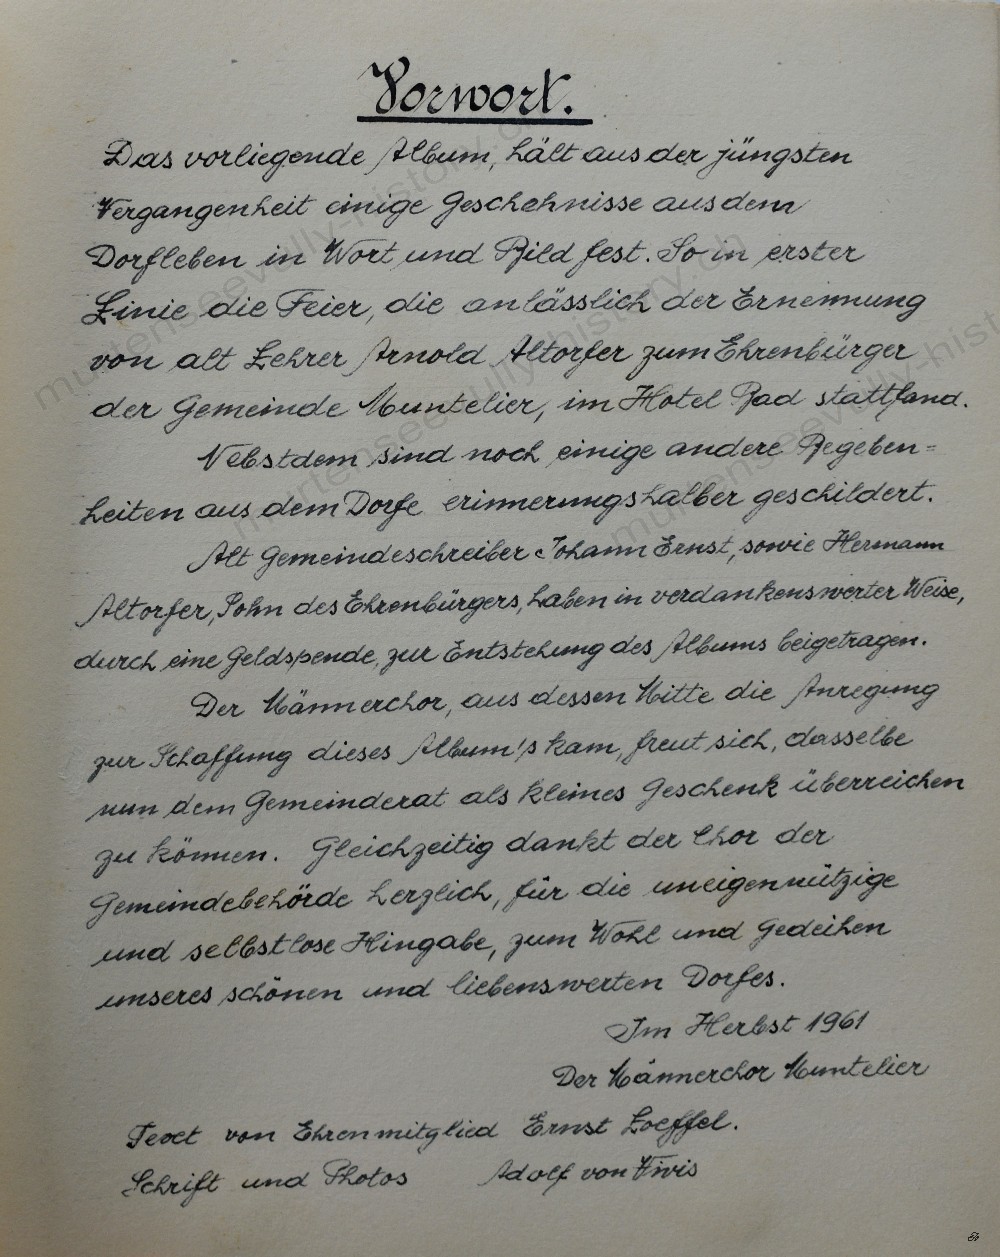 Vorwort.
Das vorliegende Album, hält aus der jüngsten
Vergangenheit einige Geschehnisse aus dem
Dorfleben in Wort und Bild fest. So in erster
Linie die Feier, die anlässlich der Ernennung
von alt Lehrer Arnold Altorfer zum Ehrenbürger
der Gemeinde Muntelier, im Hotel Bad stattfand.
Nebstdem sind noch einige andere Begeben=
heiten aus dem Dorfe erinnerungshalber geschildert.
Alt Gemeindeschreiber Johann Ernst, sowie Hermann
Altorfer, Sohn des Ehrenbürgers, haben in verdankenswerter Weise,
durch eine Geldspende, zur Entstehung des Albums beigetragen.
Der Männerchor, aus dessen Mitte die Anregung
zur Schaffung dieses Album's kam, freut sich, dasselbe
nun dem Gemeinderat als kleines Geschenk überreichen
zu können. Gleichzeitig dankt der Chor der
Gemeindebehörde herzlich, für die uneigennützige
und selbstlose Hingabe, zum Wohl und Gedeihen
unseres schönen und liebenswerten Dorfes.
Im Herbst 1961
Der Männerchor Muntelier
Text von Ehrenmitglied Ernst Loeffel.
Schrift und Photos Adolf von Vivis
murtenseevully-history.ch
murtenseevully-history.ch
murtenseevully-hist